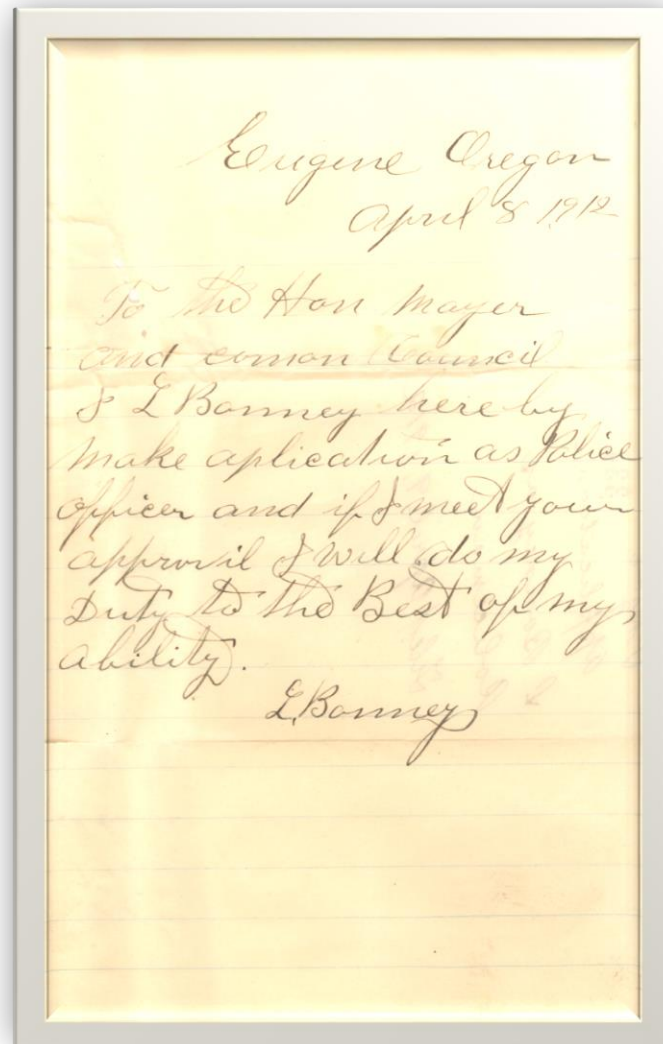 Eugene Oregon
April 8 1912
To the Hon Mayer
and comon Council
I L Bonney here by
make aplication as Police
officer and if I meet your
approvil I will do my
Duty to the Best of my
ability.
L Bonney